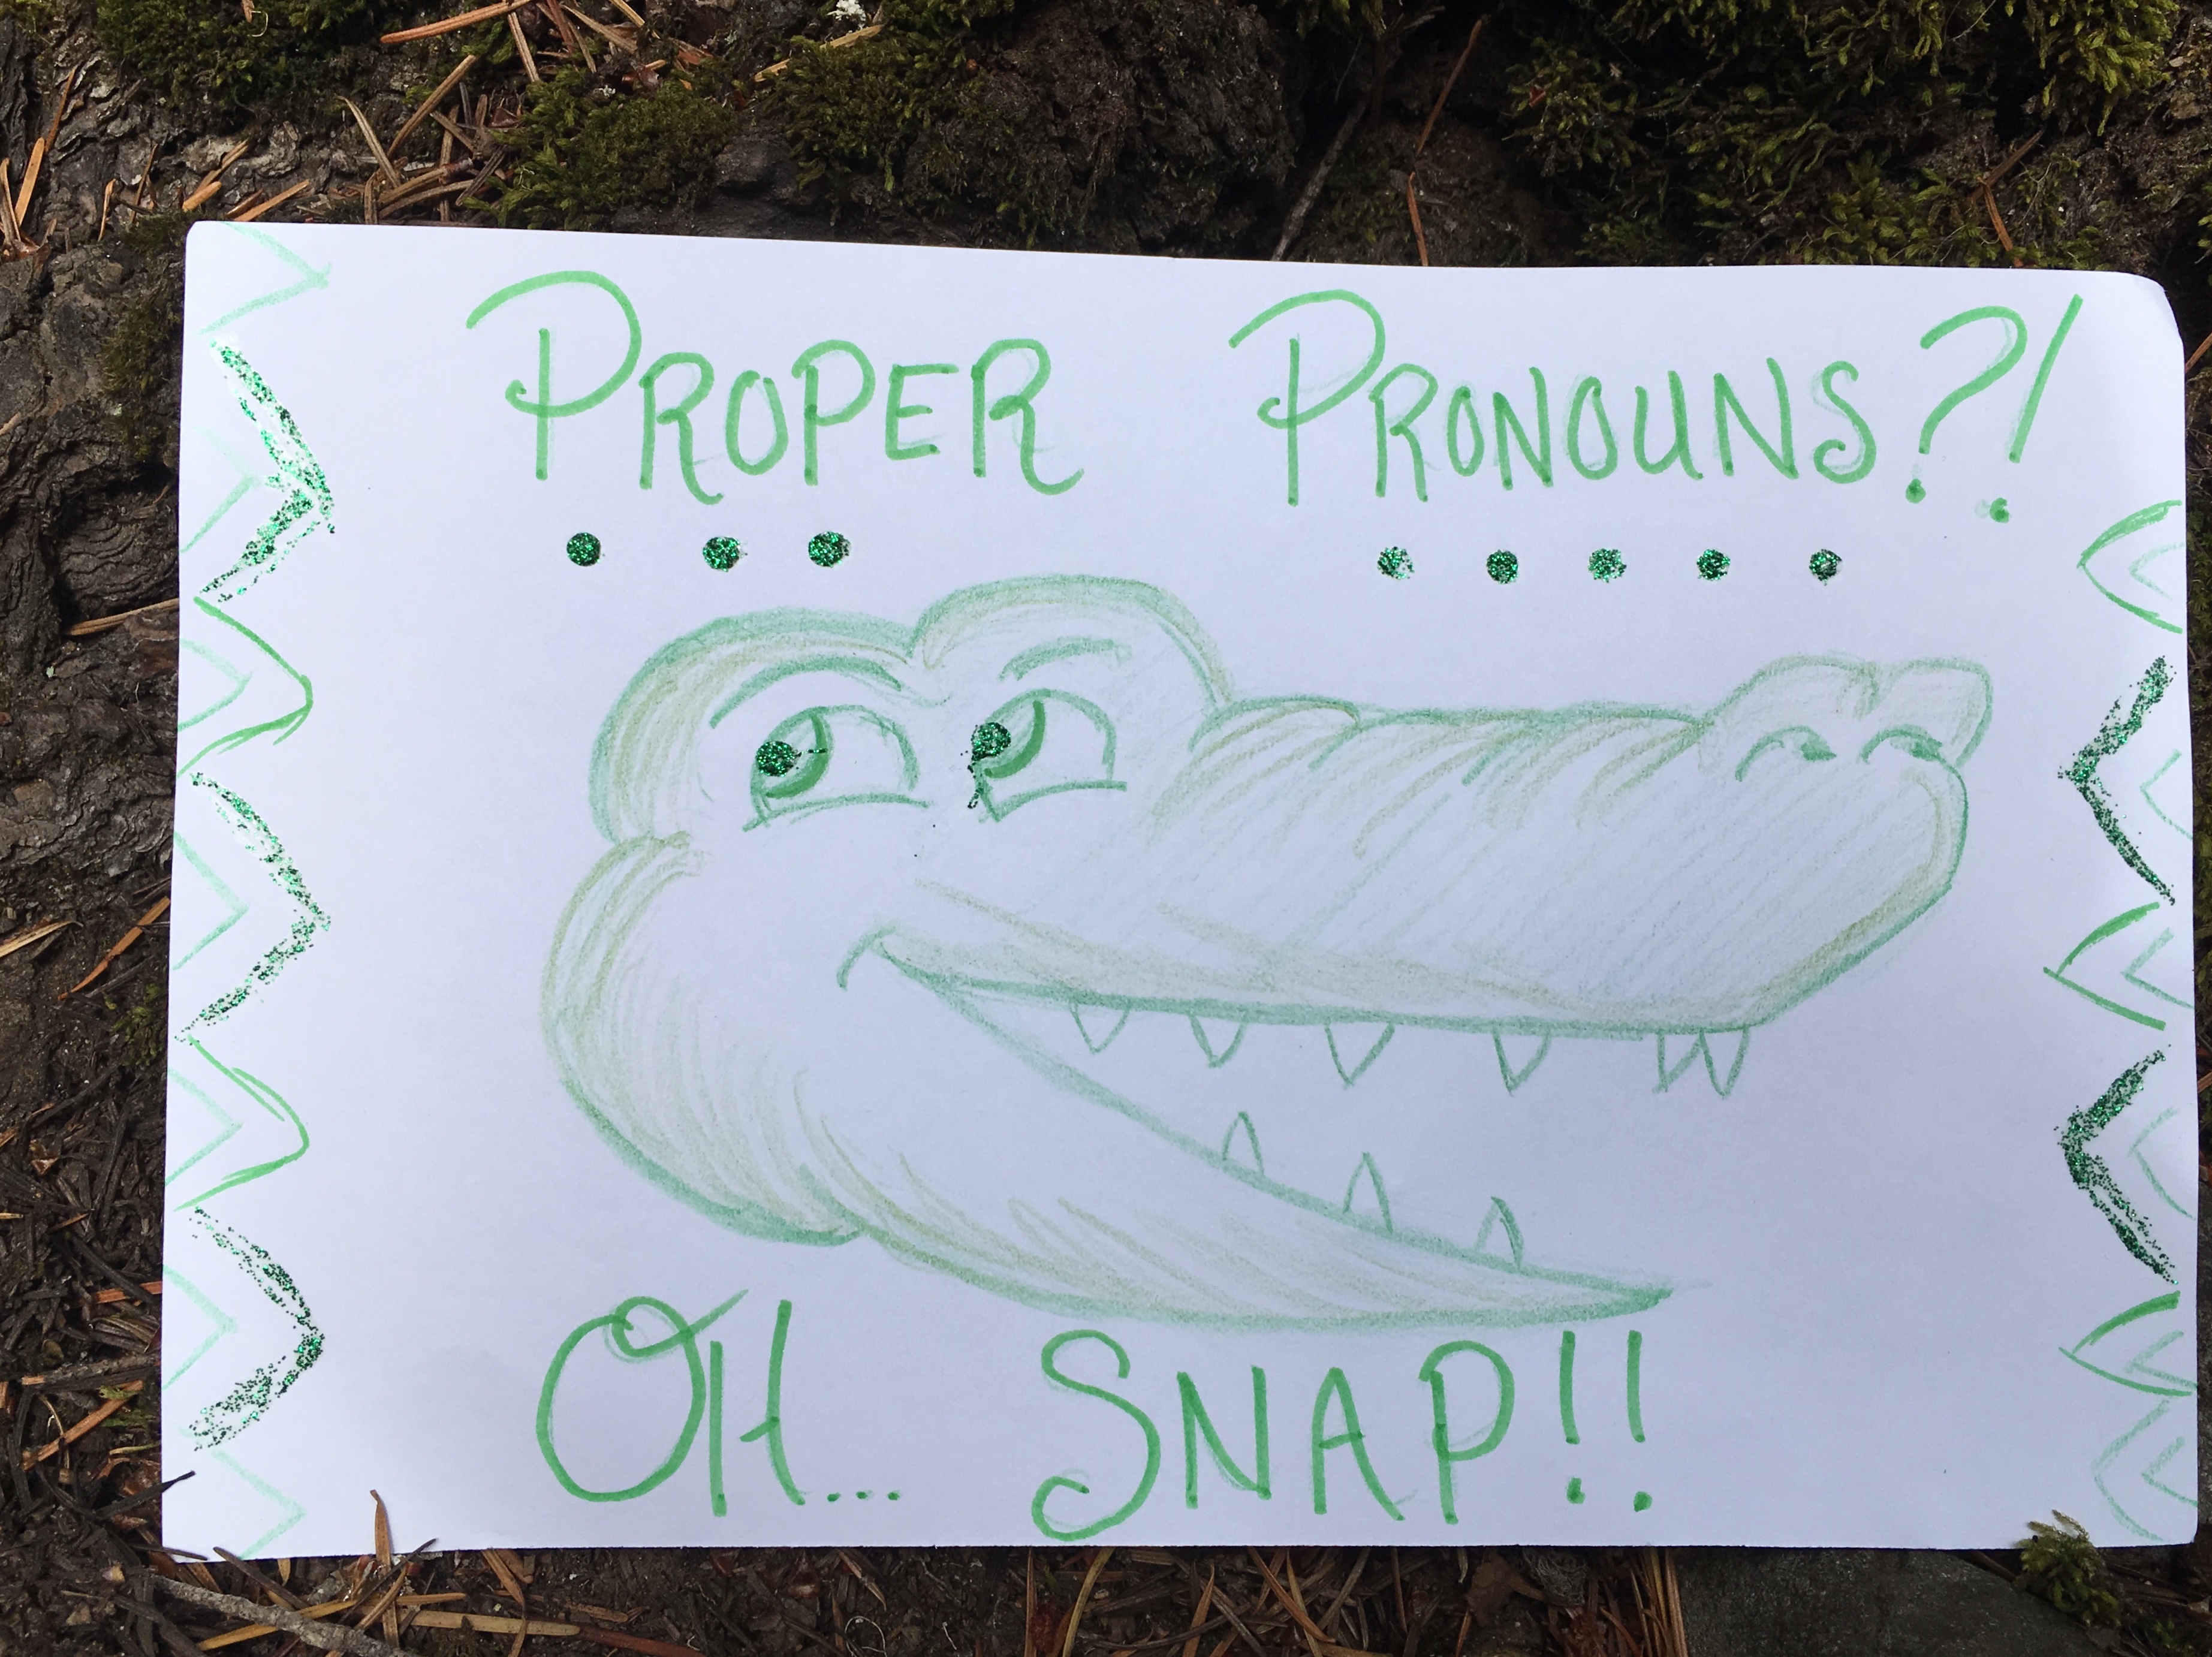 PROPER PRONOUNS?!
OH... SNAP!!